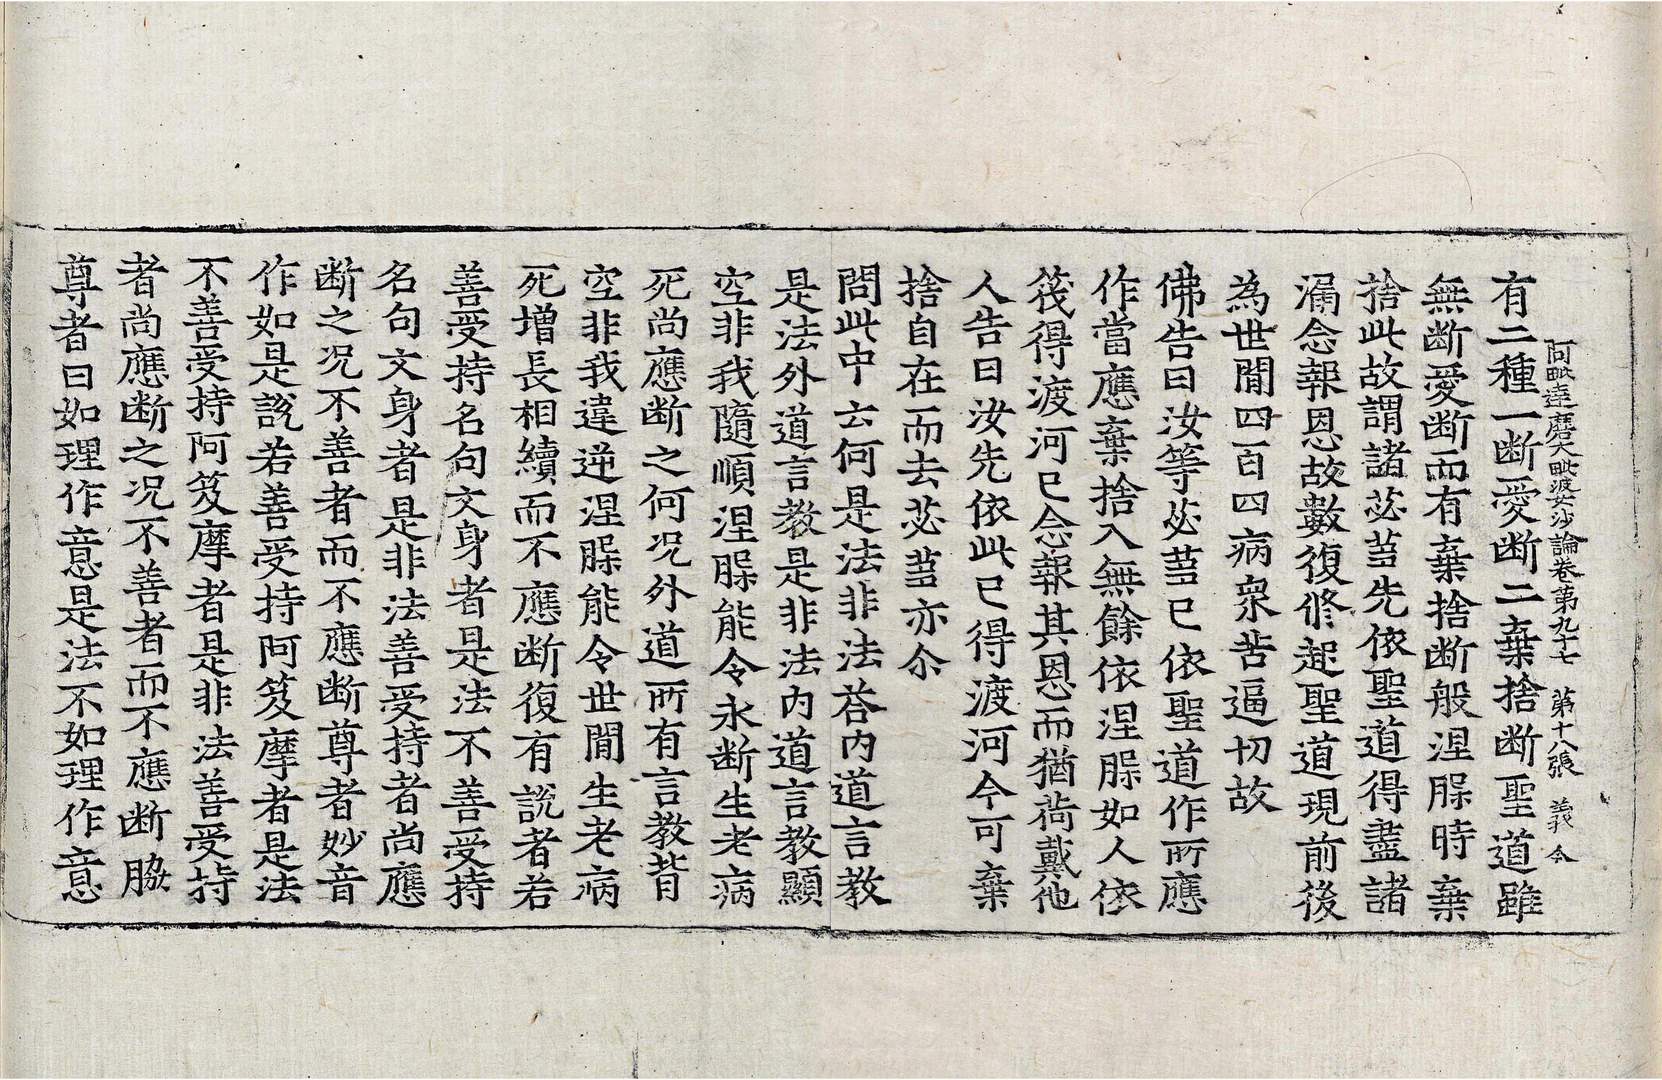 阿毗達磨大毗婆沙論卷第九十七 第十八張 義 令
有二種一断愛断二棄捨断聖道雖
無断愛断而有棄捨断般涅脲時棄
捨此故謂諸苾蒭先依聖道得盡諸
漏念報恩故數復修起聖道現前後
為世間四百四病衆苦逼切故
佛告曰汝等苾蒭已依聖道作所應
作當應棄捨入無餘依涅脲如人依
筏得渡河已念報其恩而猶荷戴他
人告曰汝先依此已得渡河今可棄
捨自在而去苾蒭亦尒
問此中云何是法非法荅內道言教
是法外道言教是非法內道言教顯
空非我隨順涅脲能令永断生老病
死尚應断之何况外道所有言教背
空非我違逆涅脲能令世間生老病
死增長相續而不應断復有說者若
善受持名句文身者是法不善受持
名句文身者是非法善受持者尚應
断之况不善者而不應断尊者妙音
作如是說若善受持阿笈摩者是法
不善受持阿笈摩者是非法善受持
者尚應断之况不善者而不應断脇
尊者曰如理作意是法不如理作意